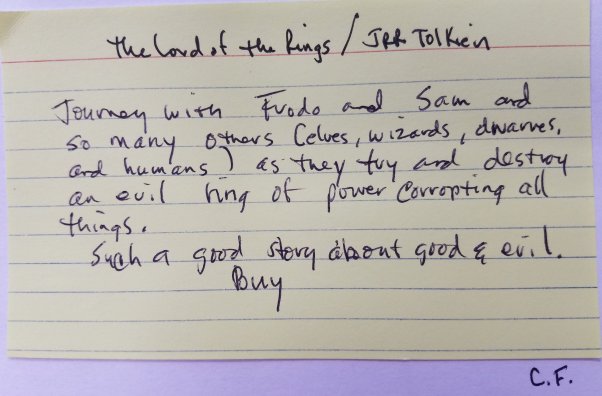 The Lord of the Rings / JRR Tolkien
Journey with Frodo and Sam and
so many others (elves, wizards, dwarves,
and humans) as they try and destroy
an evil ring of power corropting all
things.
Such a good story about good & evil.
Buy
C.F.